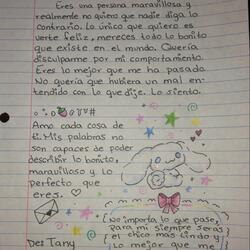 Eres una persona maravillosa y
realmente no quiero que nadie diga lo
contrario. Lo único que quiero es
verte feliz, mereces todo lo bonito
que existe en el mundo. Quería
disculparme por mi comportamiento.
Eres lo mejor que me ha pasado.
No quería que hubiera un mal en-
tendido con lo que dije. Lo siento.
Amo cada cosa de
ti. Mis palabras no
son capaces de poder
describir lo bonito,
maravilloso y lo
perfecto que
eres.
Det Tany
No importa lo que pase,
para mi siempre serás
el chico más lindo y
lo mejor que me